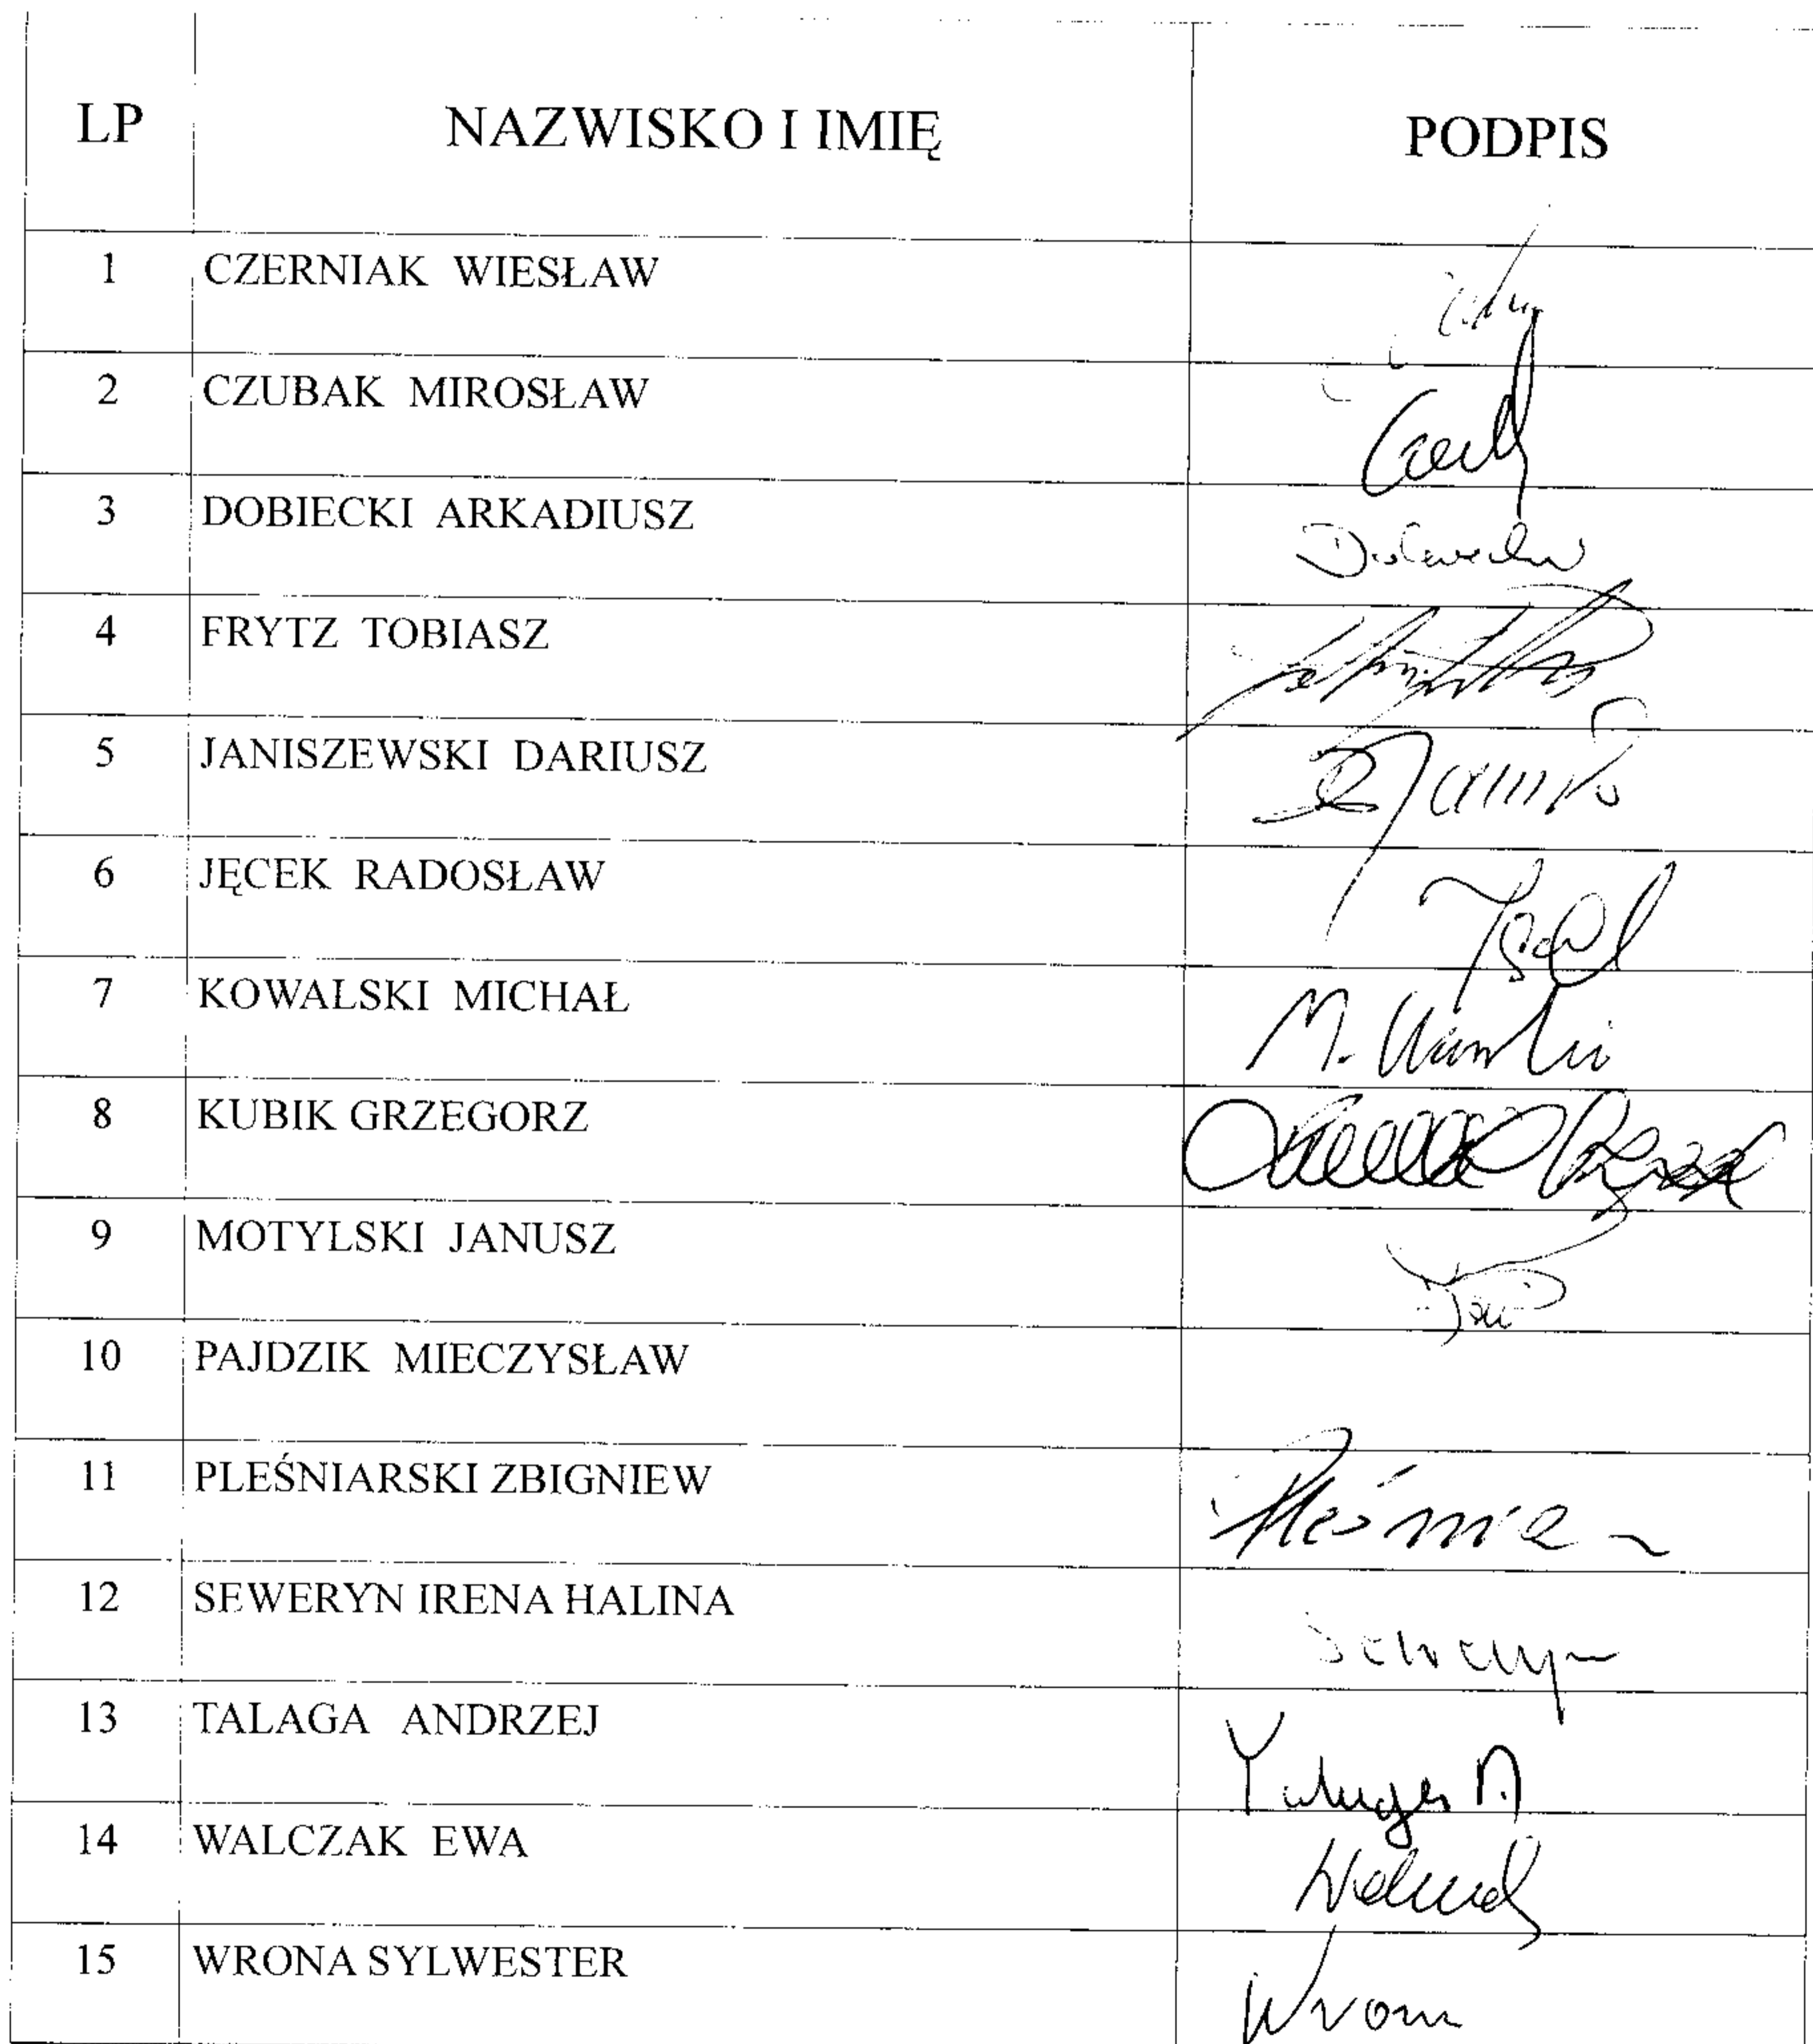 LP NAZWISKO I IMIĘ PODPIS
1 CZERNIAK WIESŁAW
2 CZUBAK MIROSŁAW
3 DOBIECKI ARKADIUSZ
4 FRYTZ TOBIASZ
5 JANISZEWSKI DARIUSZ
6 JĘCEK RADOSŁAW
7 KOWALSKI MICHAŁ
8 KUBIK GRZEGORZ
9 MOTYLSKI JANUSZ
10 PAJDZIK MIECZYSŁAW
11 PLEŚNIARSKI ZBIGNIEW
12 SEWERYN IRENA HALINA
13 TALAGA ANDRZEJ
14 WALCZAK EWA
15 WRONA SYLWESTER